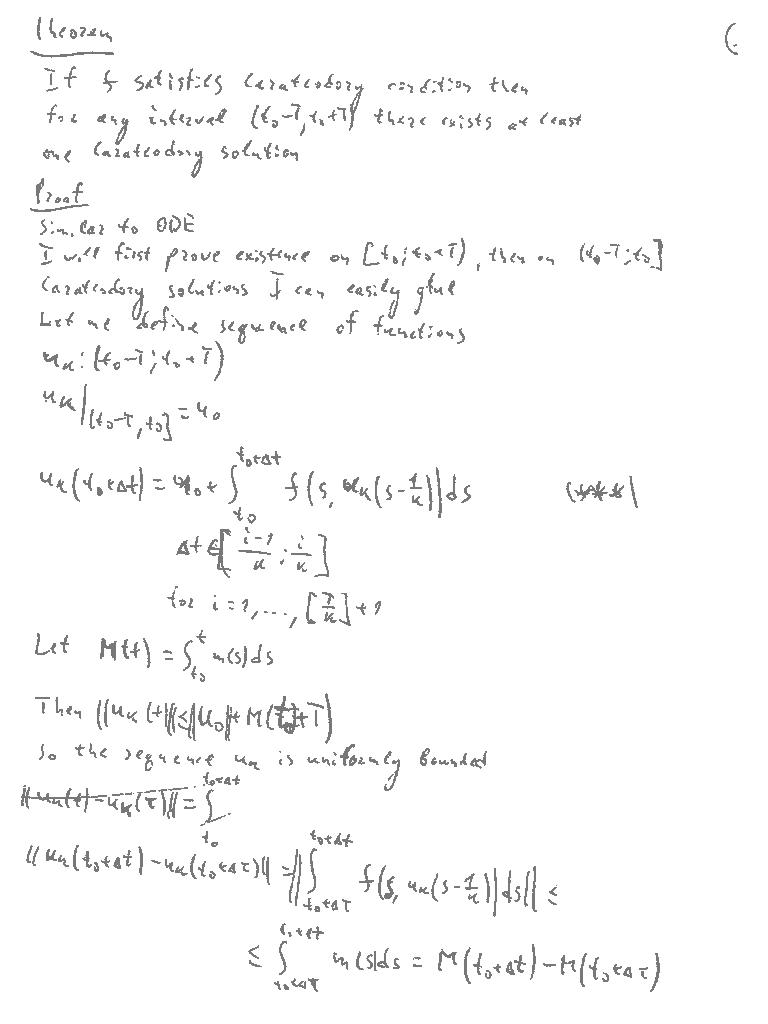 Theorem
If f satisfies Carateodory condition then
for any interval (t₀-T, t₀+T) there exists at least
one Carateodory solution
Proof
Similar to ODE
I will first prove existence on [t₀; t₀+T), then on (t₀-T; t₀]
Carateodory solutions I can easily glue
Let me define sequence of functions
uₖ: (t₀-T; t₀+T)
uₖ|(t₀-T, t₀] = u₀
uₖ(t₀+Δt) = u₀ + ∫_{t₀}^{t₀+Δt} f(s, uₖ(s-1/k)) ds (***)
Δt ∈ [(i-1)/k ; i/k]
for i = 1, ..., [T/k] + 1
Let M(t) = ∫_{t₀}^{t} m(s)ds
Then ||uₖ(t)|| ≤ ||u₀|| + M(t₀+T)
So the sequence uₖ is uniformly bounded
||uₖ(t) - uₖ(τ)|| = ∫_{t₀}^{t₀+Δt}
||uₖ(t₀+Δt) - uₖ(t₀+Δτ)|| = ||∫_{t₀+Δτ}^{t₀+Δt} f(s, uₖ(s-1/k)) ds|| ≤
≤ ∫_{t₀+Δτ}^{t₀+Δt} m(s)ds = M(t₀+Δt) - M(t₀+Δτ)